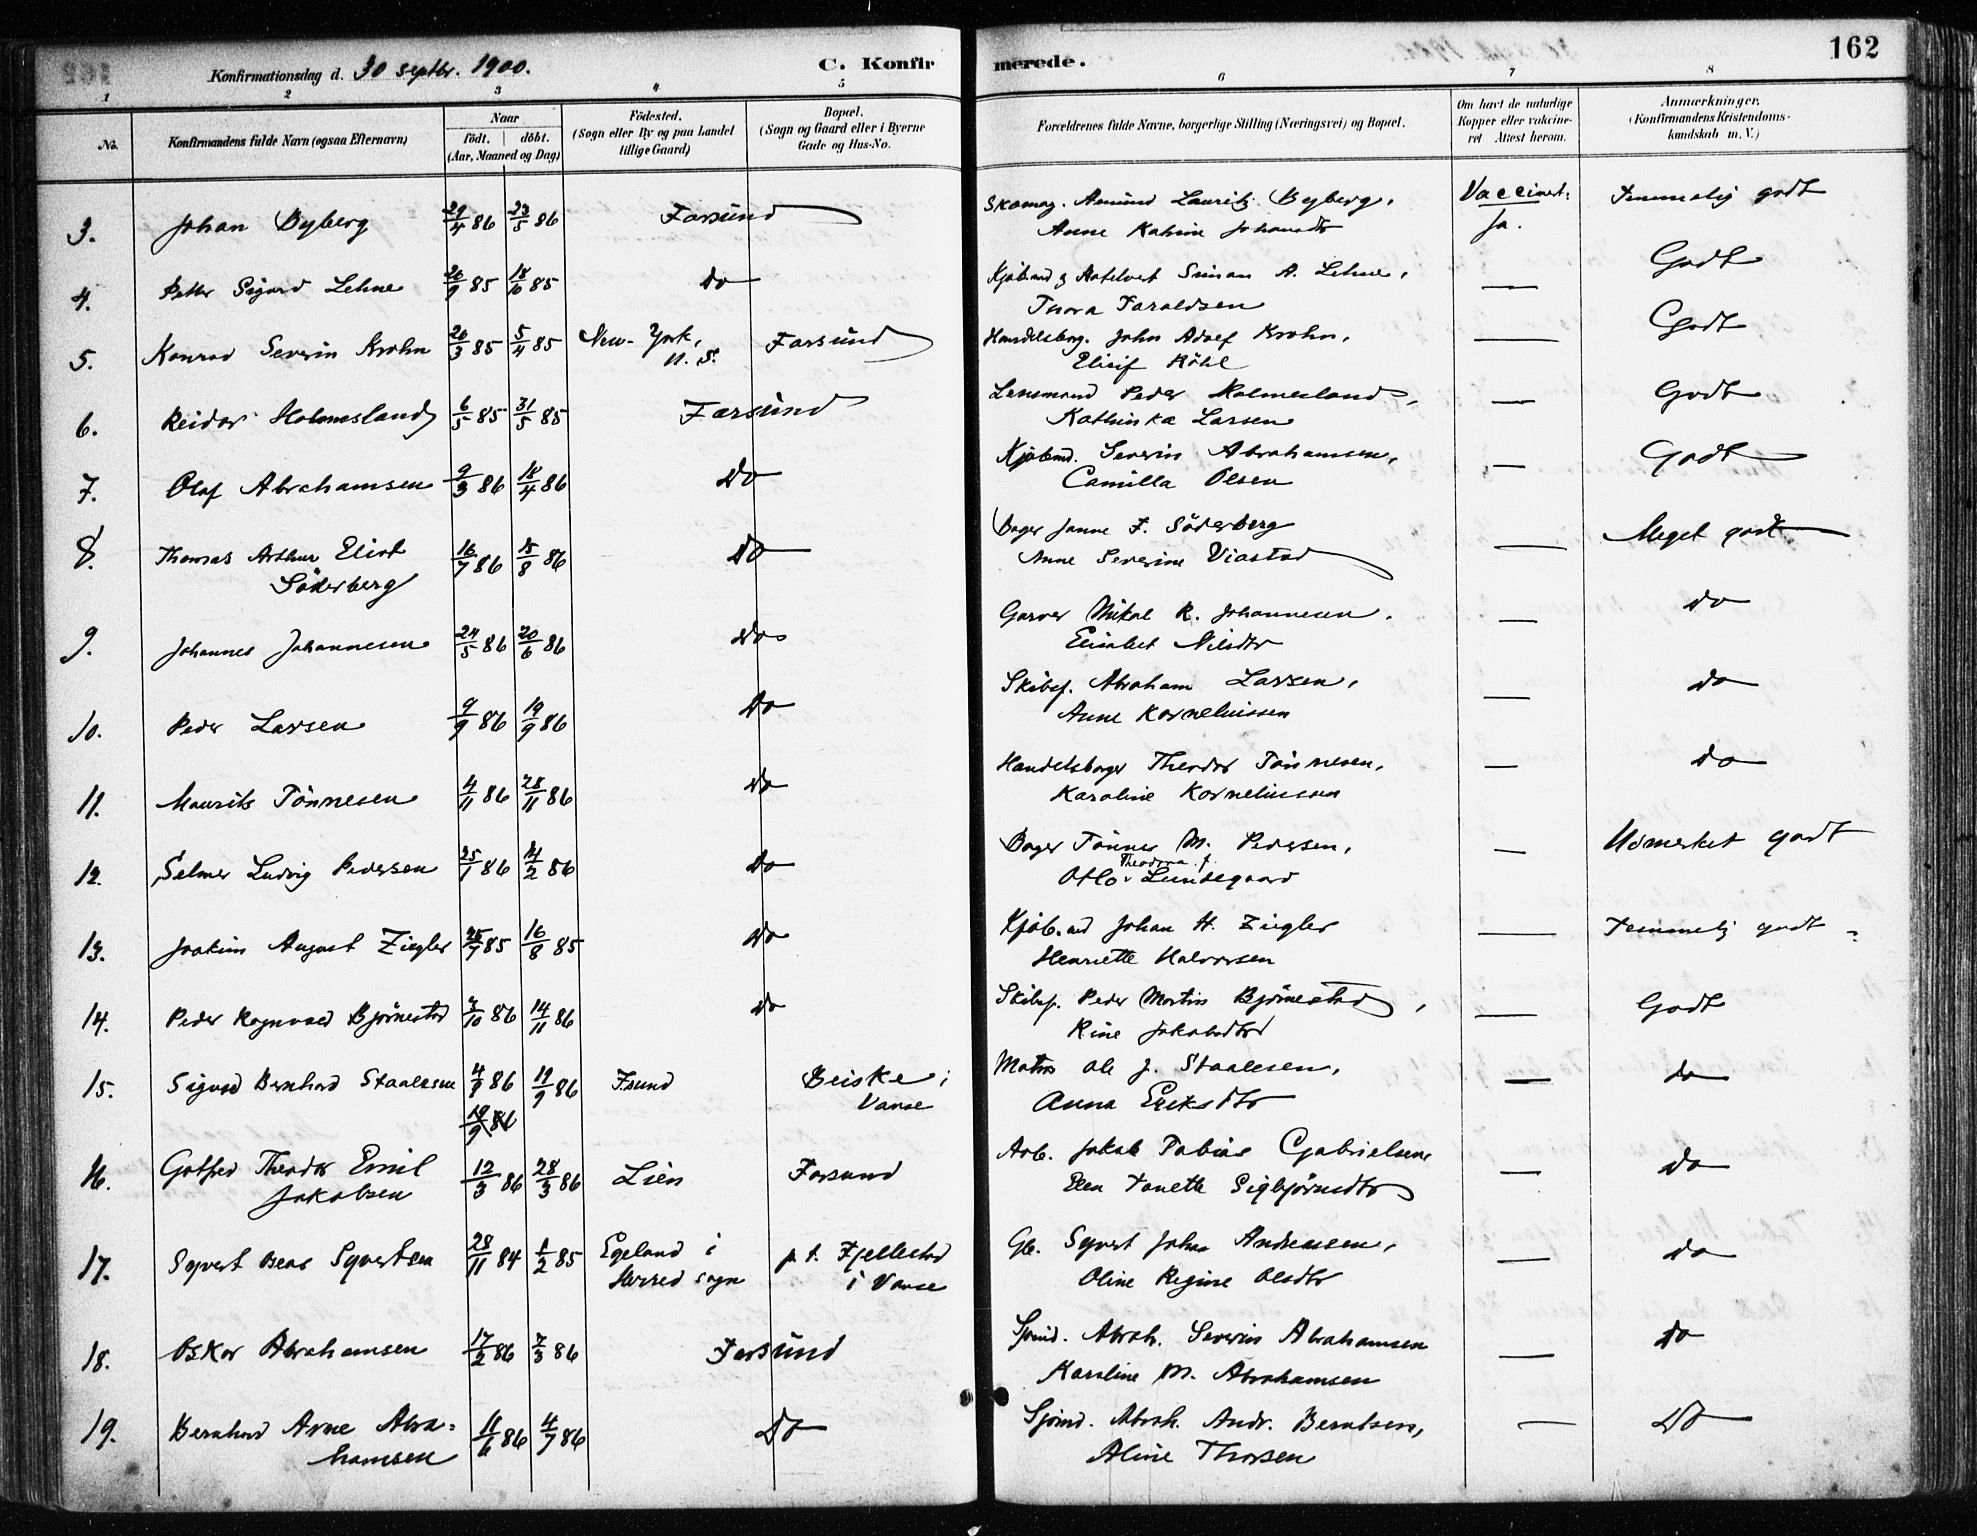 Konfirmationsdag d. 30 septbr. 1900.
C. Konfirmerede.
162
1 2 3 4 5 6 7 8
No.
Konfirmandens fulde Navn (ogsaa Efternavn)
Naar
Födt. döbt.
(Aar, Maaned og Dag)
Födested.
(Sogn eller By og paa Landet
tillige Gaard)
Bopæl.
(Sogn og Gaard eller i Byerne
Gade og Hus-No.
Forældrenes fulde Navne, borgerlige Stilling (Næringsvei) og Bopæl.
Om havt de naturlige
Kopper eller vaccine-
ret Attest herom.
Anmærkninger.
(Konfirmandens Kristendoms-
kundskab m. V.)
3. Johan Byberg 29/4 86 23/5 86 Farsund Skomag. Amund Lauritz Byberg, Vaccinert: Temmelig godt
Anne Katrine Johansdtr Ja.
4. Petter Sigurd Lehne 26/9 85 18/10 85 Do Kjöbmd & Hotelvert Simon A. Lehne, — Godt
Thora Taraldsen
5. Konrad Severin Krohn 26/3 85 5/4 85 New-York, Farsund Handelsborg. John Adolf Krohn, — Godt
U. S. Elisif Röhl
6. Reidar Holmesland 6/5 85 31/5 85 Farsund Lensmand Peder Holmesland, — Godt
Kathinka Larsen
7. Olaf Abrahamsen 9/3 86 18/4 86 Do Kjöbmd. Severin Abrahamsen, — Godt
Camilla Olsen
8. Thomas Arthur Eliot 16/7 86 15/8 86 Do Bager Janne F. Söderberg — Meget godt
Söderberg Anne Severine Viastad
9. Johannes Johannesen 24/5 86 20/6 86 Do Garver Mikal R. Johannesen, — do
Elisabet Nilsdtr
10. Peder Larsen 9/9 86 19/9 86 Do Skibsf. Abraham Larsen, — do
Anne Korneliussen
11. Maurits Tönnesen 4/11 86 28/11 86 Do Handelsborger Theodor Tönnesen, — do
Karoline Korneliussen
12. Selmer Ludvig Pedersen 25/1 86 14/2 86 Do Bager Tönnes M. Pedersen, — Udmerket godt
Theodora f.
Otto Lundegaard
13. Joakim August Ziegler 25/7 85 16/8 85 Do Kjöbmd Johan H. Ziegler — Temmelig godt
Henriette Halvorsen
14. Peder Ragnvald Björnestad 3/10 86 14/11 86 Do Skibsf. Peder Martin Björnestad, — Godt
Rine Jakobsdtr
15. Sigurd Bernhard Staalesen 4/8 86 19/9 86 Fsund Beiske i Matros Ole J. Staalesen, — do
19/9 86 Vanse Anna Eriksdtr
16. Gotfred Theodor Emil 12/3 86 28/3 86 Lien Farsund Arb. Jakob Tobias Gabrielsen — do
Jakobsen Elen Tonette Sigbjörnsdtr
17. Syvert Beas Syvertsen 28/11 84 1/2 85 Egeland i p. t. Fjellestad Gb. Syvert Johan Andreassen, — do
Herred sogn i Vanse Oline Regine Olsdtr
18. Oskar Abrahamsen 17/2 86 7/3 86 Farsund Sjömd. Abrah. Severin Abrahamsen — do
Karoline M. Abrahamsen
19. Bernhard Arne Abra- 11/6 86 4/7 86 Do Sjömd. Abrah. Andr. Berntsen, — do
hamsen Aline Thorsen